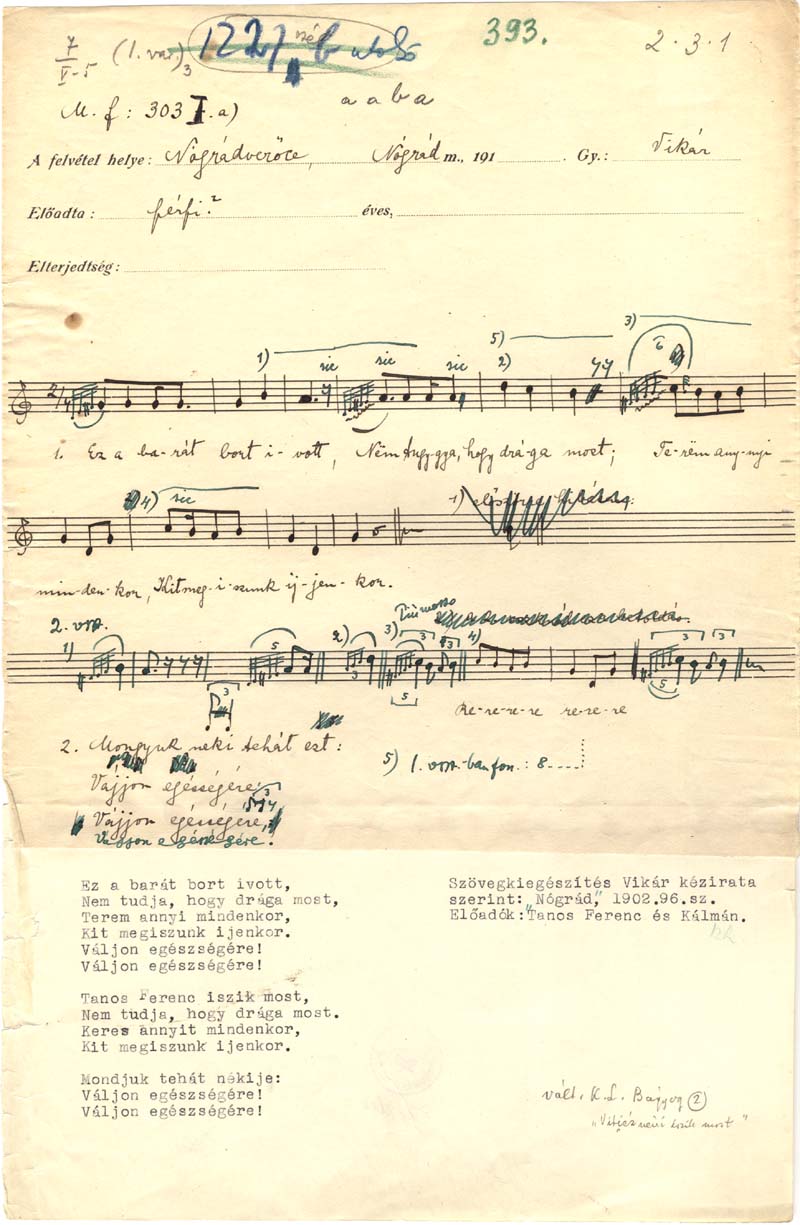 7
V-5
(1. var.)3
1227 b utolsó
393.
2.3.1
M. f: 303 I.a)
a a b a
A felvétel helye: Nógrádverőce, Nógrád m., 191 . Gy.: Vikár
Előadta: férfi? éves,
Elterjedtség:
1) sic sic sic 5) 2) 3) 6
2/4
1. Ez a ba-rát bort i-vott, Nëm tugy-gya, hogy drá-ga most; Te-rëm any-nyi
4) sic 1)
min-den-kor, Kit meg-i-szunk ij-jen-kor.
2. vsz. Più mosso
1) 5 2) 3) 3 3 4) 3 3
3 5 5
Re-re-re-re re-re-re
2. Mongyuk neki tehát ezt:
5) 1. vsz.-ban fon.: 8----
Vájjon egésségére
Vájjon egésségére,
Vájjon e gésségére!
Ez a barát bort ivott,
Nem tudja, hogy drága most,
Terem annyi mindenkor,
Kit megiszunk ijenkor.
Váljon egészségére!
Váljon egészségére!
Szövegkiegészítés Vikár kézirata
szerint: Nógrád, 1902.96.sz.
Előadók: Tanos Ferenc és Kálmán.
Tanos Ferenc iszik most,
Nem tudja, hogy drága most.
Keres annyit mindenkor,
Kit megiszunk ijenkor.
Mondjuk tehát nékije:
Váljon egészségére!
Váljon egészségére!
vált. K.L. Bagyog 2